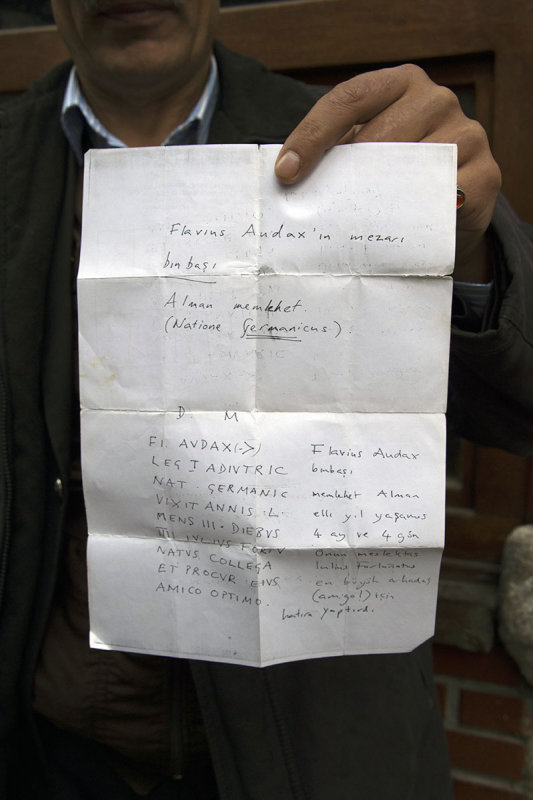 Flavius Audax'ın mezarı
binbaşı
Alman memleket.
(Natione Germanicus)
D. M
Fl. AVDAX (->)
LEG I ADIVTRIC
NAT. GERMANIC
VIXIT ANNIS. L.
MENS III. DIEBVS
IIII IVLIVS FORTV
NATVS COLLEGA
ET PROCVR EIVS
AMICO OPTIMO.
Flavius Audax
binbaşı
memleket Alman
elli yıl yaşamış
4 ay ve 4 gün
Onun meslektaş
Julius
en büyük arkadaş
(amigo!) için
hatıra yaptırdı.